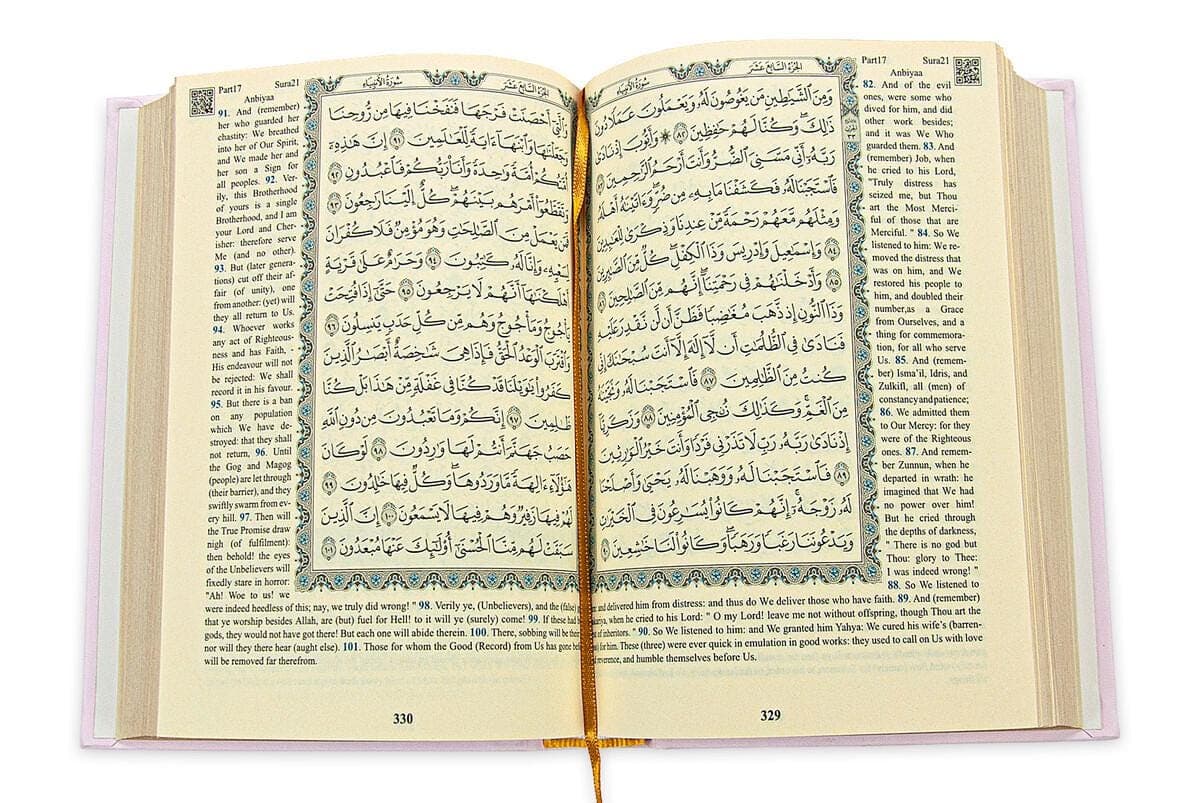 Part17 Sura21
Anbiyaa
الجزء السابع عشر
سورة الأنبياء
وَمِنَ الشَّيَاطِينِ مَن يَغُوصُونَ لَهُ وَيَعْمَلُونَ عَمَلًا دُونَ
ذَٰلِكَ وَكُنَّا لَهُمْ حَافِظِينَ ٨٢ ۞ وَأَيُّوبَ إِذْ نَادَىٰ
رَبَّهُ أَنِّي مَسَّنِيَ الضُّرُّ وَأَنتَ أَرْحَمُ الرَّاحِمِينَ ٨٣
فَاسْتَجَبْنَا لَهُ فَكَشَفْنَا مَا بِهِ مِن ضُرٍّ وَآتَيْنَاهُ أَهْلَهُ
وَمِثْلَهُم مَّعَهُمْ رَحْمَةً مِّنْ عِندِنَا وَذِكْرَىٰ لِلْعَابِدِينَ
٨٤ وَإِسْمَاعِيلَ وَإِدْرِيسَ وَذَا الْكِفْلِ كُلٌّ مِّنَ الصَّابِرِينَ
٨٥ وَأَدْخَلْنَاهُمْ فِي رَحْمَتِنَا إِنَّهُم مِّنَ الصَّالِحِينَ ٨٦
وَذَا النُّونِ إِذ ذَّهَبَ مُغَاضِبًا فَظَنَّ أَن لَّن نَّقْدِرَ عَلَيْهِ
فَنَادَىٰ فِي الظُّلُمَاتِ أَن لَّا إِلَٰهَ إِلَّا أَنتَ سُبْحَانَكَ إِنِّي
كُنتُ مِنَ الظَّالِمِينَ ٨٧ فَاسْتَجَبْنَا لَهُ وَنَجَّيْنَاهُ
مِنَ الْغَمِّ وَكَذَٰلِكَ نُنجِي الْمُؤْمِنِينَ ٨٨ وَزَكَرِيَّا
إِذْ نَادَىٰ رَبَّهُ رَبِّ لَا تَذَرْنِي فَرْدًا وَأَنتَ خَيْرُ الْوَارِثِينَ
٨٩ فَاسْتَجَبْنَا لَهُ وَوَهَبْنَا لَهُ يَحْيَىٰ وَأَصْلَحْنَا
لَهُ زَوْجَهُ إِنَّهُمْ كَانُوا يُسَارِعُونَ فِي الْخَيْرَاتِ
وَيَدْعُونَنَا رَغَبًا وَرَهَبًا وَكَانُوا لَنَا خَاشِعِينَ ٩٠
82. And of the evil
ones, were some who
dived for him, and did
other work besides;
and it was We Who
guarded them. 83. And
(remember) Job, when
he cried to his Lord,
"Truly distress has
seized me, but Thou
art the Most Merci-
ful of those that are
Merciful. " 84. So We
listened to him: We re-
moved the distress that
was on him, and We
restored his people to
him, and doubled their
number,as a Grace
from Ourselves, and a
thing for commemora-
tion, for all who serve
Us. 85. And (remem-
ber) Isma'il, Idris, and
Zulkifl, all (men) of
constancy and patience;
86. We admitted them
to Our Mercy: for they
were of the Righteous
ones. 87. And remem-
ber Zunnun, when he
departed in wrath: he
imagined that We had
no power over him!
But he cried through
the depths of darkness,
" There is no god but
Thou: glory to Thee:
I was indeed wrong! "
88. So We listened to
and delivered him from distress: and thus do We deliver those who have faith. 89. And (remember)
when he cried to his Lord: " O my Lord! leave me not without offspring, though Thou art the
of inheritors. " 90. So We listened to him: and We granted him Yahya: We cured his wife's (barren-
for him. These (three) were ever quick in emulation in good works: they used to call on Us with love
reverence, and humble themselves before Us.
329
Part17 Sura21
Anbiyaa
الجزء السابع عشر
سورة الأنبياء
وَالَّتِي أَحْصَنَتْ فَرْجَهَا فَنَفَخْنَا فِيهَا مِن رُّوحِنَا
وَجَعَلْنَاهَا وَابْنَهَا آيَةً لِّلْعَالَمِينَ ٩١ إِنَّ هَٰذِهِ
أُمَّتُكُمْ أُمَّةً وَاحِدَةً وَأَنَا رَبُّكُمْ فَاعْبُدُونِ ٩٢
وَتَقَطَّعُوا أَمْرَهُم بَيْنَهُمْ كُلٌّ إِلَيْنَا رَاجِعُونَ ٩٣
فَمَن يَعْمَلْ مِنَ الصَّالِحَاتِ وَهُوَ مُؤْمِنٌ فَلَا كُفْرَانَ
لِسَعْيِهِ وَإِنَّا لَهُ كَاتِبُونَ ٩٤ وَحَرَامٌ عَلَىٰ قَرْيَةٍ
أَهْلَكْنَاهَا أَنَّهُمْ لَا يَرْجِعُونَ ٩٥ حَتَّىٰ إِذَا فُتِحَتْ
يَأْجُوجُ وَمَأْجُوجُ وَهُم مِّن كُلِّ حَدَبٍ يَنسِلُونَ ٩٦
وَاقْتَرَبَ الْوَعْدُ الْحَقُّ فَإِذَا هِيَ شَاخِصَةٌ أَبْصَارُ الَّذِينَ
كَفَرُوا يَا وَيْلَنَا قَدْ كُنَّا فِي غَفْلَةٍ مِّنْ هَٰذَا بَلْ كُنَّا
ظَالِمِينَ ٩٧ إِنَّكُمْ وَمَا تَعْبُدُونَ مِن دُونِ اللَّهِ
حَصَبُ جَهَنَّمَ أَنتُمْ لَهَا وَارِدُونَ ٩٨ لَوْ كَانَ
هَٰؤُلَاءِ آلِهَةً مَّا وَرَدُوهَا وَكُلٌّ فِيهَا خَالِدُونَ ٩٩
لَهُمْ فِيهَا زَفِيرٌ وَهُمْ فِيهَا لَا يَسْمَعُونَ ١٠٠ إِنَّ الَّذِينَ
سَبَقَتْ لَهُم مِّنَّا الْحُسْنَىٰ أُولَٰئِكَ عَنْهَا مُبْعَدُونَ ١٠١
91. And (remember)
her who guarded her
chastity: We breathed
into her of Our Spirit,
and We made her and
her son a Sign for
all peoples. 92. Ver-
ily, this Brotherhood
of yours is a single
Brotherhood, and I am
your Lord and Cher-
isher: therefore serve
Me (and no other).
93. But (later genera-
tions) cut off their af-
fair (of unity), one
from another: (yet) will
they all return to Us.
94. Whoever works
any act of Righteous-
ness and has Faith, -
His endeavour will not
be rejected: We shall
record it in his favour.
95. But there is a ban
on any population
which We have de-
stroyed: that they shall
not return, 96. Until
the Gog and Magog
(people) are let through
(their barrier), and they
swiftly swarm from ev-
ery hill. 97. Then will
the True Promise draw
nigh (of fulfilment):
then behold! the eyes
of the Unbelievers will
fixedly stare in horror:
"Ah! Woe to us! we
were indeed heedless of this; nay, we truly did wrong! " 98. Verily ye, (Unbelievers), and the (false)
that ye worship besides Allah, are (but) fuel for Hell! to it will ye (surely) come! 99. If these had
gods, they would not have got there! But each one will abide therein. 100. There, sobbing will be their
nor will they there hear (aught else). 101. Those for whom the Good (Record) from Us has gone
will be removed far therefrom.
330